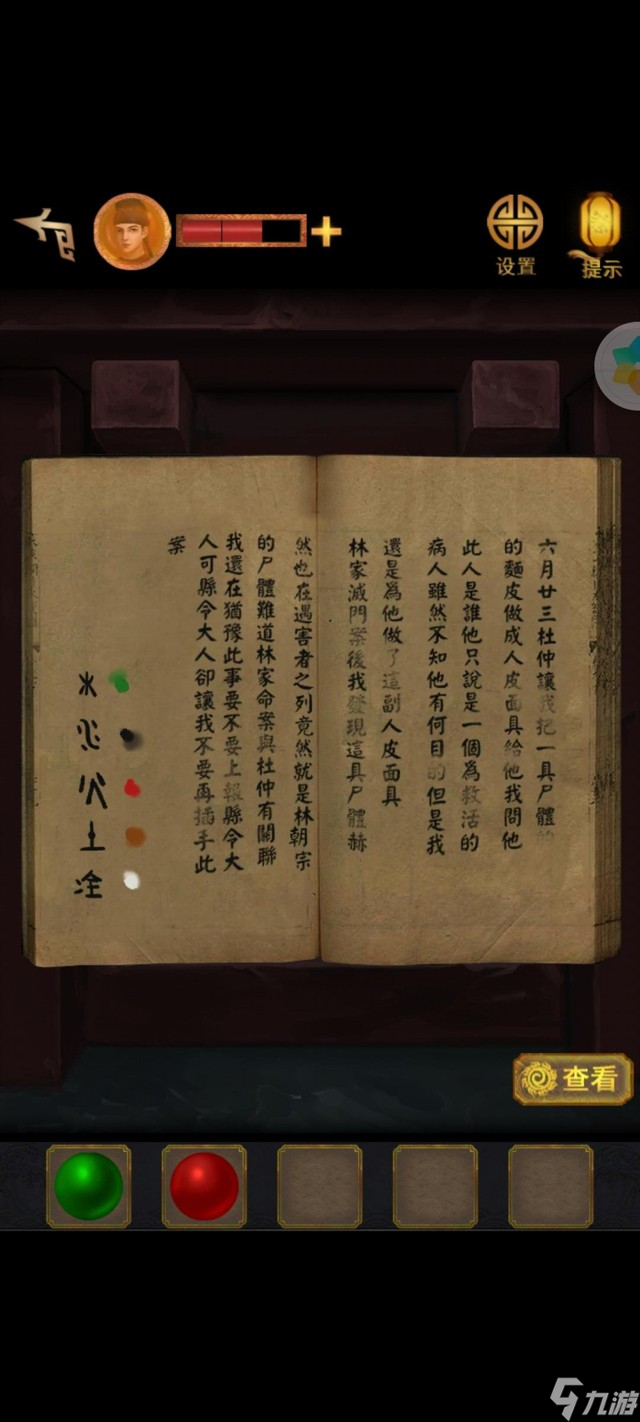 设置
提示
六月廿三杜仲讓我把一具尸體的
的麵皮做成人皮面具給他我問他
此人是誰他只說是一個為救活的
病人雖然不知他有何目的但是我
還是為他做了這副人皮面具
林家滅門案後我發現這具尸體赫
然也在遇害者之列竟然就是林朝宗
的尸體難道林家命案與杜仲有關聯
我還在猶豫此事要不要上報縣令大
人可縣令大人卻讓我不要再插手此
案
查看
九游